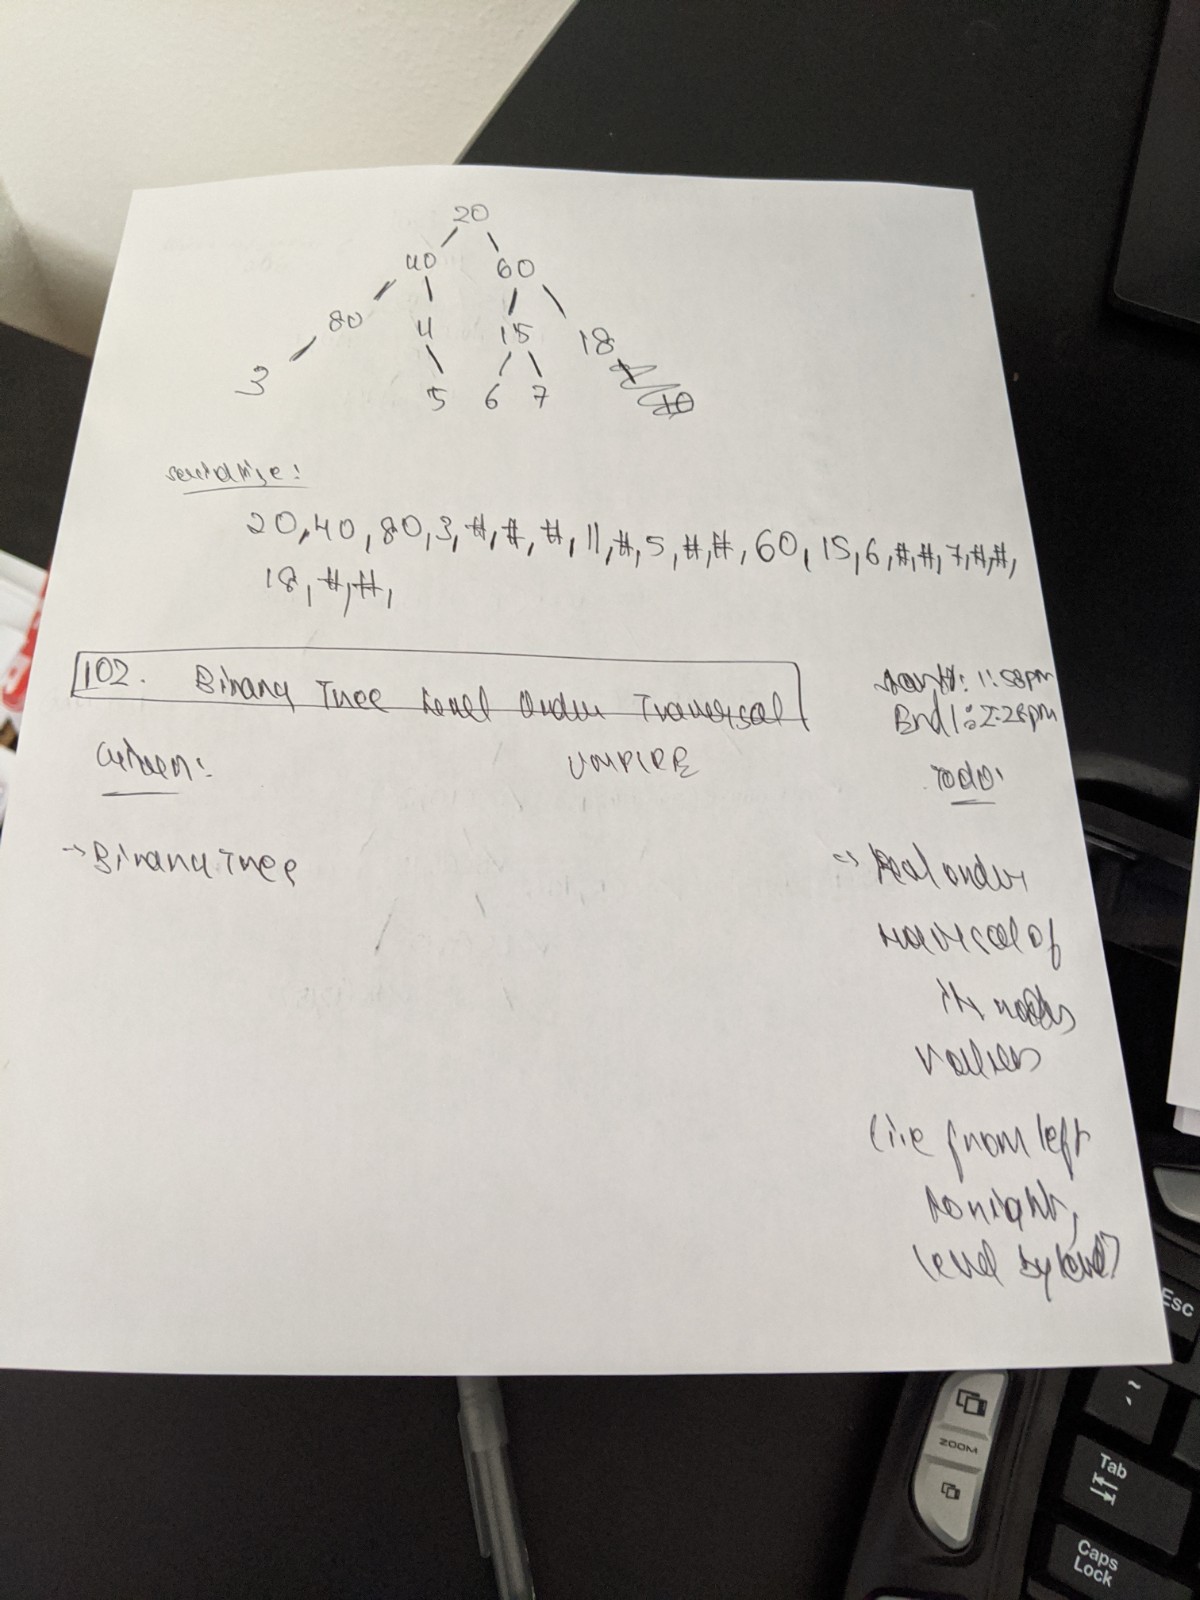 20
40 60
80 4 15 18
3 5 6 7
serialize:
20,40,80,3,#,#,#,11,#,5,#,#,60,15,6,#,#,7,#,#,
18,#,#,
102. Binary Tree Level Order Traversal
Start: 1:58pm
End: 2:28pm
Given:
UMPIRE
Todo:
→ Binary Tree
=> level order
traversal of
its nodes
values
(i.e from left
to right,
level by level)
Esc
~
ZOOM
Tab
Caps
Lock